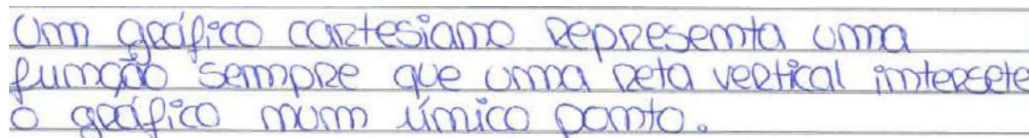 Um gráfico cartesiano representa uma
função sempre que uma reta vertical intersete
o gráfico num único ponto.